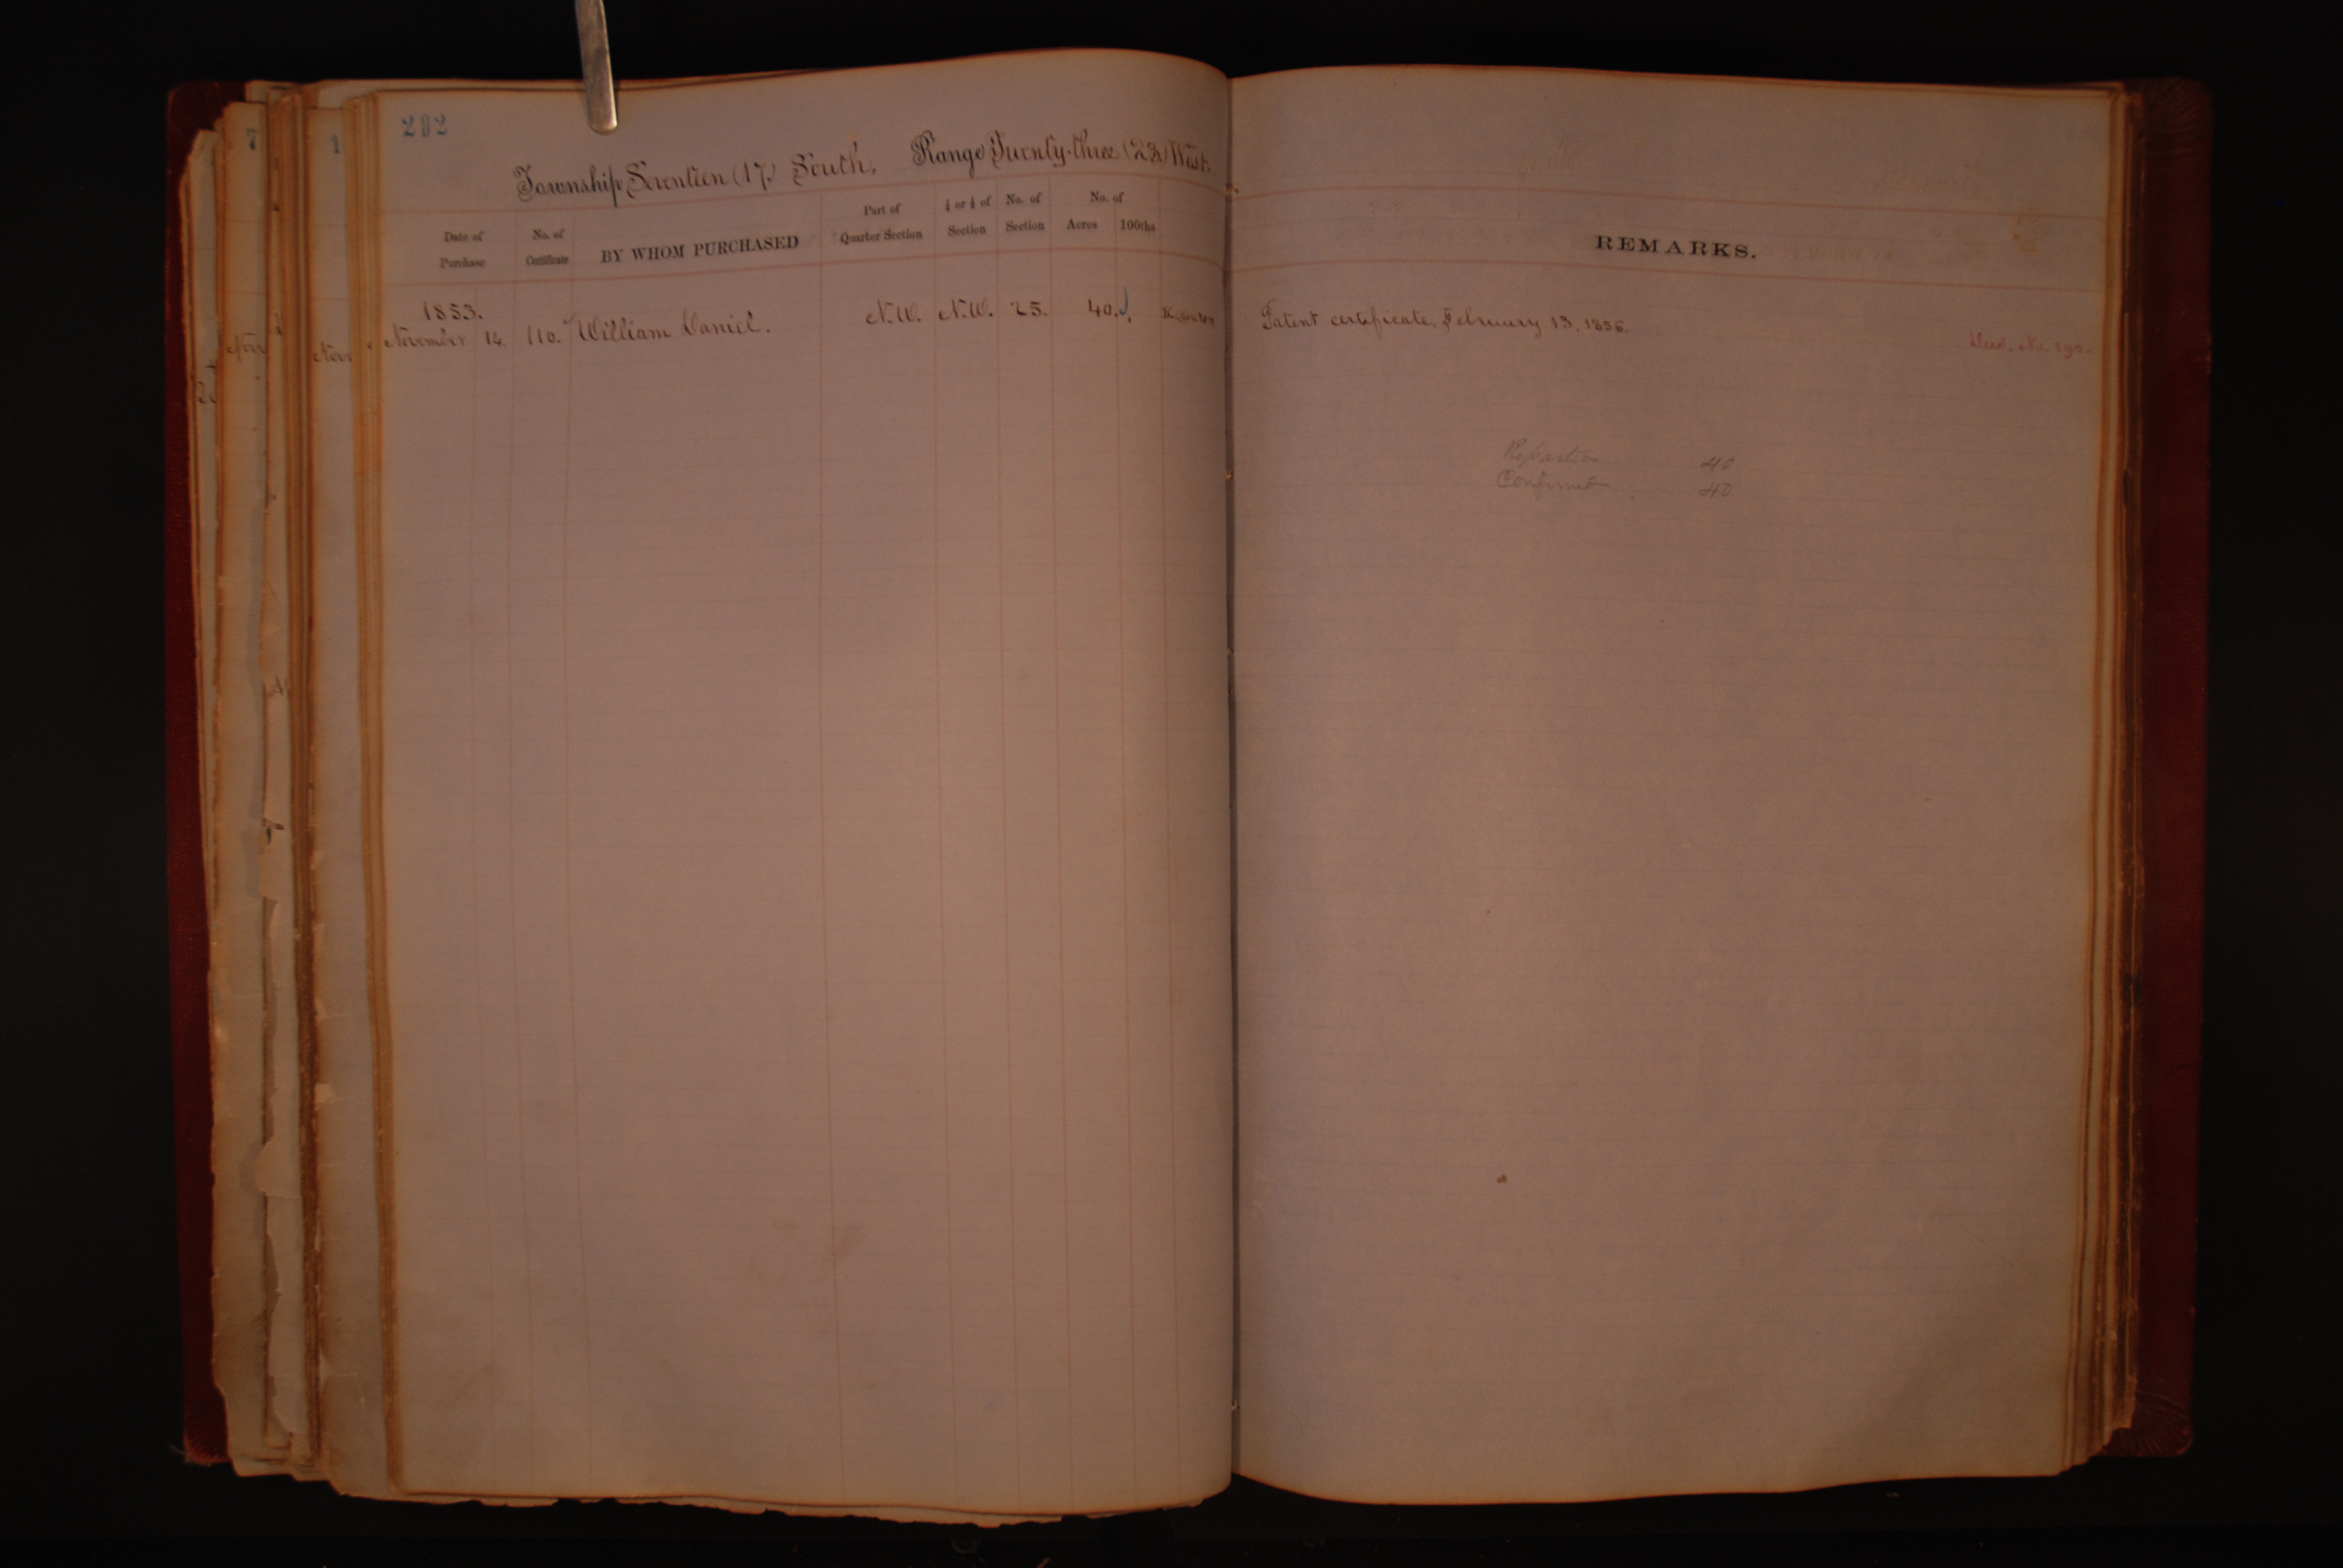 202
Township Seventeen (17) South, Range Twenty-three (23) West.
Date of Purchase
No. of Certificate
BY WHOM PURCHASED
Part of Quarter Section
¼ or ½ of Section
No. of Section
No. of
Acres 100ths
REMARKS.
1853.
November 14. 110. William Daniel. N.W. N.W. 25. 40.
Patent certificate, February 13, 1856.
No.
Confirmed 40
40
7
1
Nov